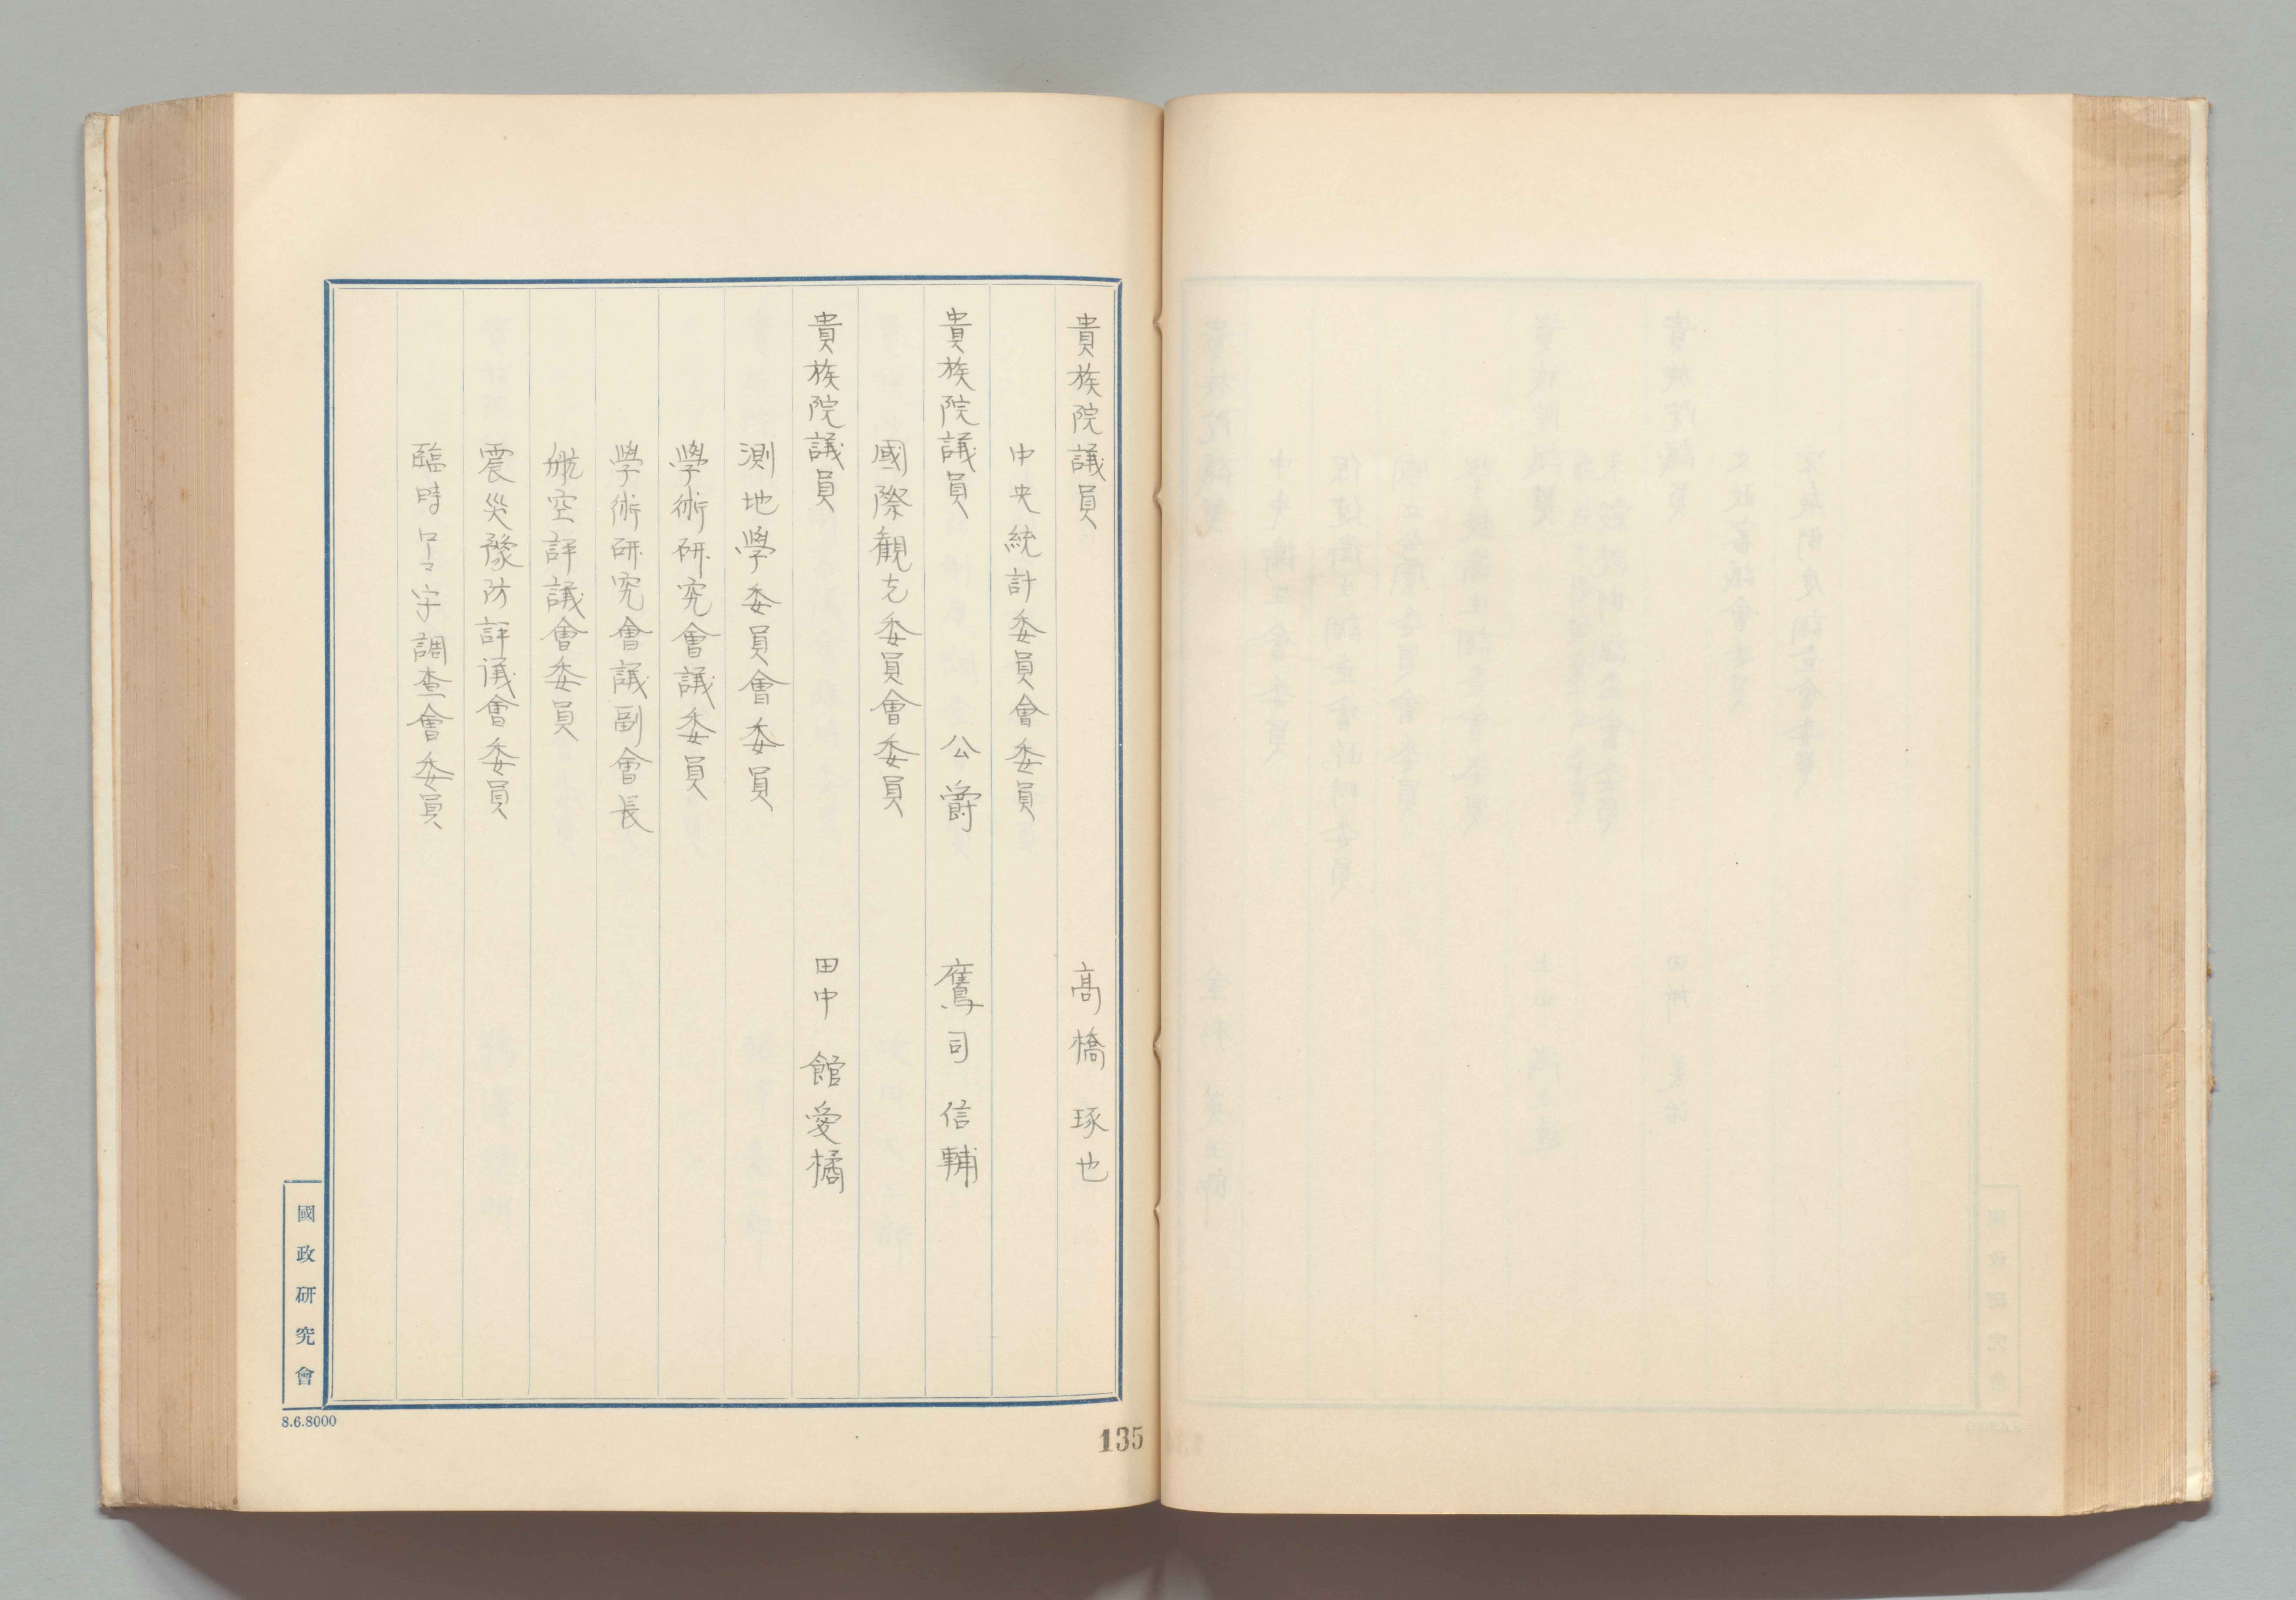 貴族院議員 高橋琢也
中央統計委員會委員
貴族院議員 公爵 鷹司信輔
國際観光委員會委員
貴族院議員 田中館愛橘
測地學委員會委員
學術研究會議委員
學術研究會議副會長
航空評議會委員
震災豫防評議會委員
臨時ローマ字調査會委員
國政研究會
8.6.8000
135